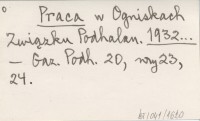 Praca w Ogniskach
Związku Podhalan. 1932...
— Gaz. Podh. 20, nry 23,
24.